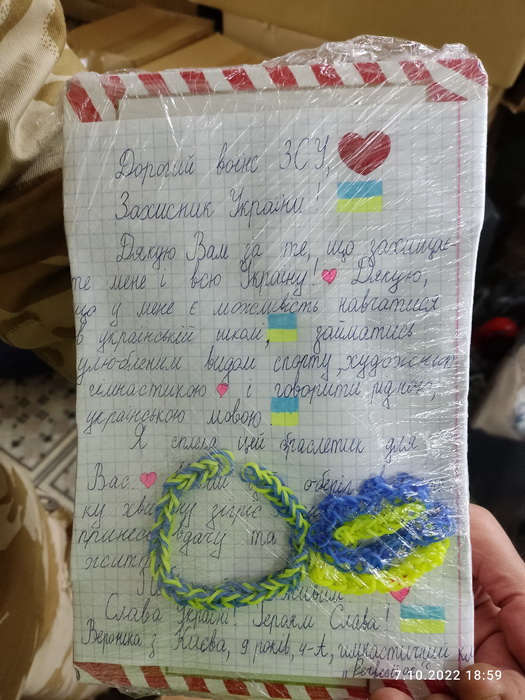 Дорогий воїне ЗСУ,
Захисник України!
Дякую Вам за те, що захищає-
те мене і всю Україну! Дякую,
що у мене є можливість навчатися
в українській школі, займатись
улюбленим видом спорту, художньою
гімнастикою, і говорити рідною,
українською мовою.
Я сплела цей браслетик для
Вас оберіг
ку хв зігріє
принес вдачу та
житт
живим
Слава Україні! Героям Слава!
Вероніка з Києва, 9 років, 4-А, гімнастичний
7.10.2022 18:59